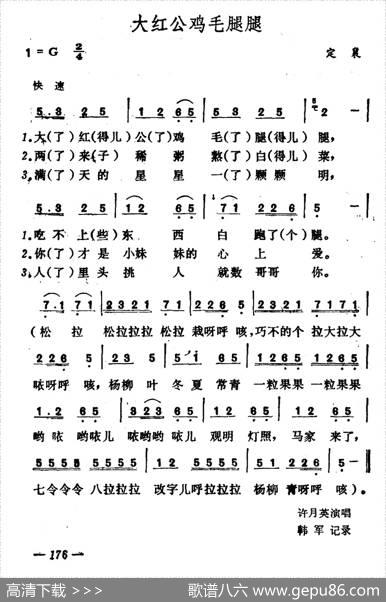 大红公鸡毛腿腿
1=G 2/4
定襄
快速
5.3 25 | 12 65 | 25 25 | 52 - |
1.大(了)红(得儿)公(了)鸡 毛(了)腿(得儿)腿,
2.两(了)来(子)稀 粥 熬(了)白(得儿)菜,
3.满(了)天的 星 星 一(了)颗颗 明,
5.3 25 | 12 65 | 71 2265 | 5 - |
1.吃不上(些)东 西 白 跑了(个)腿。
2.你(了)才是小妹 妹的 心 上 爱。
3.人(了)里头挑 人 就数 哥哥 你。
7.1 71 | 2321 71 | 2321 2265 | 2321 7171 |
(松 拉 松拉拉拉 松拉 栽呀呼 咳,巧不的个 拉大拉大
226 5 | 335 223 | 5.i 65 | 1265 1265 |
咴呀呼 咳,杨柳 叶 冬夏 常青 一粒果果 一粒果果
1.2 65 | 323 65 | 25 25 | 12 65 |
哟咴 哟咴儿 咴哟哟 咴儿 观明 灯照, 马家 来了,
5555 5555 | 225 5555 | 25 226 | 5 - |
七令令令 八拉拉拉 改字儿呼拉拉拉 杨柳 青呀呼 咳)。
许月英演唱
韩军 记录
— 176 —
高清下载 >>>
歌谱八六 www.gepu86.com